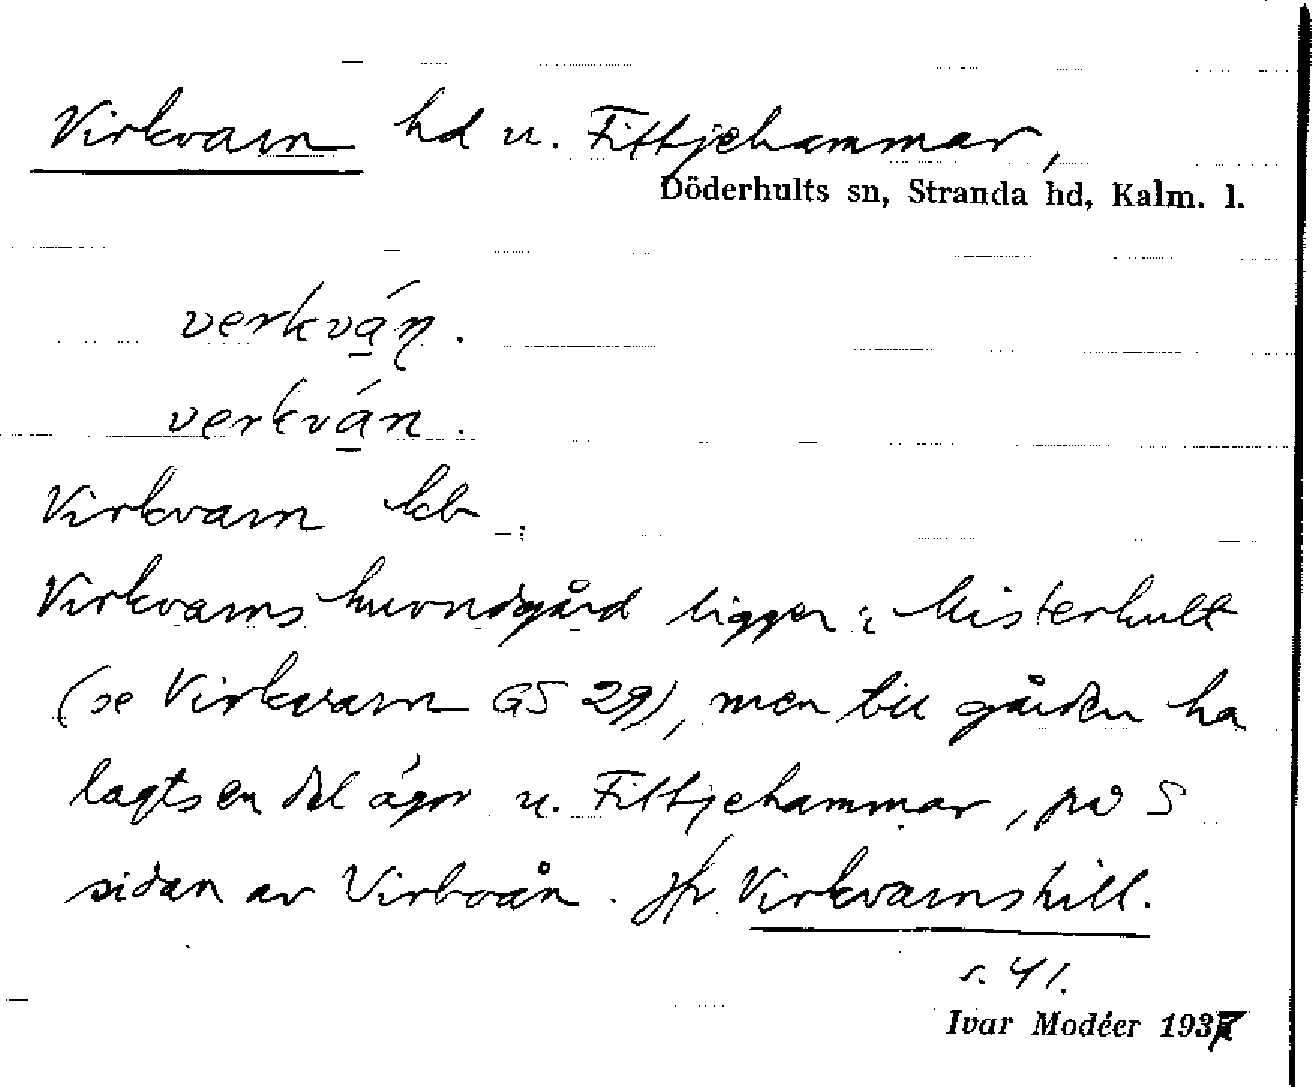 Virkvarn hd u. Fittjehammar,
Döderhults sn, Stranda hd, Kalm. l.
verkvá̱ṇ.
verkvá̱n.
Virkvarn kb
Virkvarns huvudgård ligger i Misterhult
(se Virkvarn GS 29), men till gården ha
lagts en del ägor u. Fittjehammar, på S
sidan av Virboån. Jfr Virkvarnshill.
s. 41.
Ivar Modéer 1937